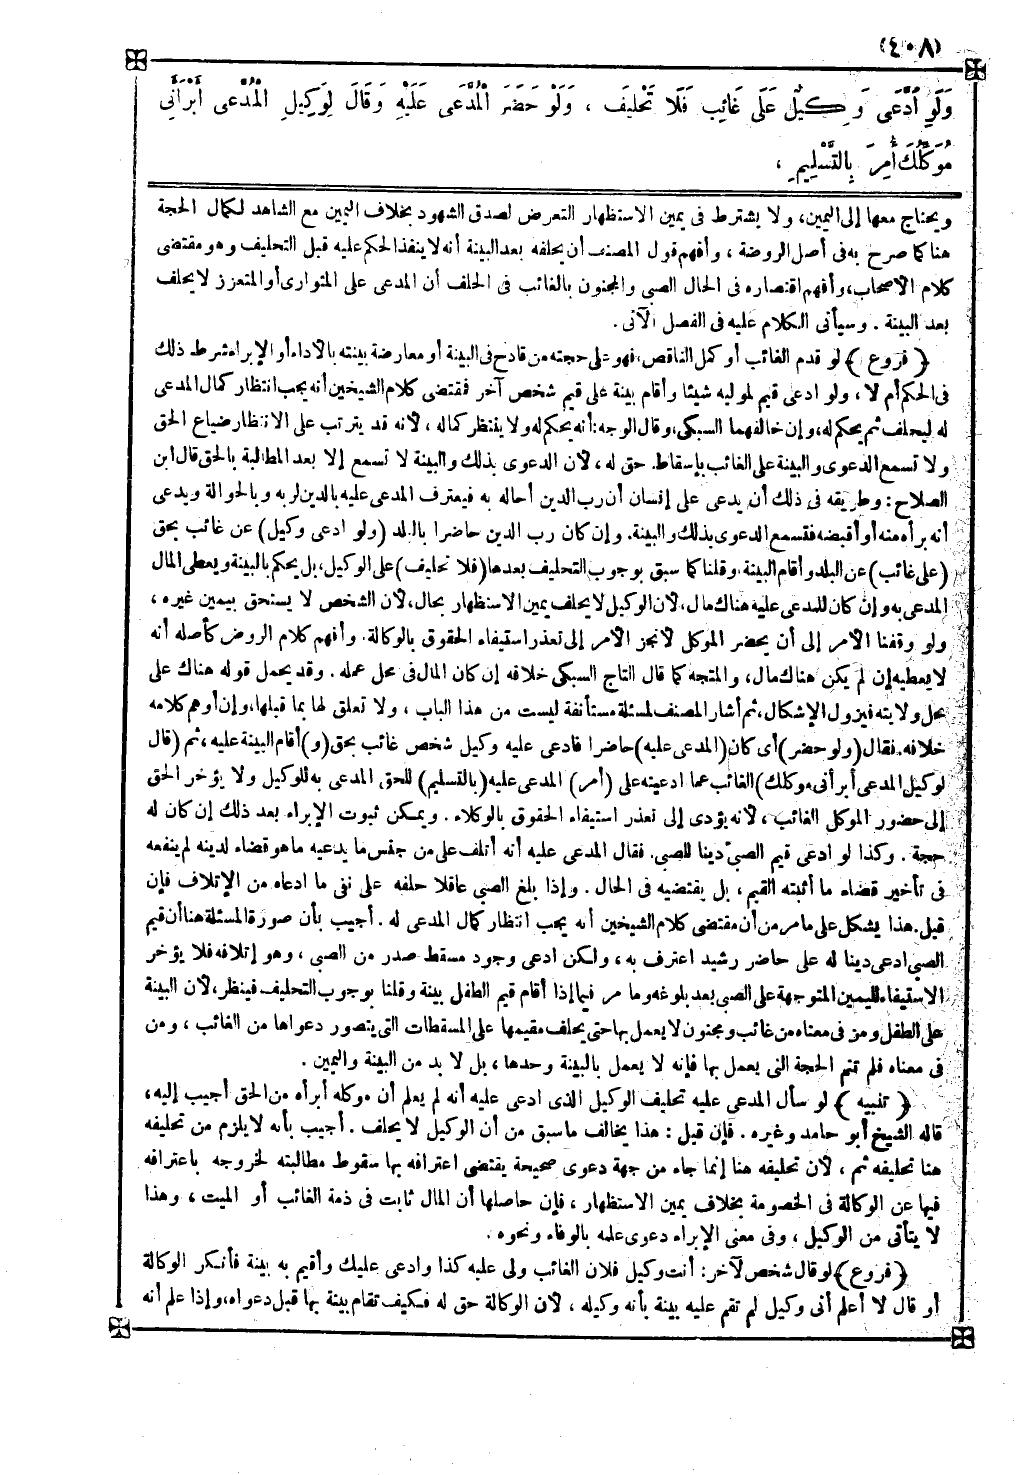 (٤٠٨)
وَلَوِ ادَّعَى وَكِيلٌ عَلَى غَائِبٍ فَلَا تَحْلِيفَ ، وَلَوْ حَضَرَ الْمُدَّعَى عَلَيْهِ وَقَالَ لِوَكِيلِ الْمُدَّعِى أَبْرَأَنِى
مُوَكِّلُكَ أُمِرَ بِالتَّسْلِيمِ ،
ويحتاج معها إلى اليمين، ولا يشترط فى يمين الاستظهار التعرض لصدق الشهود بخلاف اليمين مع الشاهد لكمال الحجة
هنا كما صرح به فى أصل الروضة ، وأفهم قول المصنف أن يحلفه بعد البينة أنه لا ينفذ الحكم عليه قبل التحليف وهو مقتضى
كلام الأصحاب، وأفهم اقتصاره فى الحال الصبى والمجنون بالغائب فى الحلف أن المدعى على المتوارى أو المتعزز لا يحلف
بعد البينة . وسيأتى الكلام عليه فى الفصل الآتى .
﴿ فروع ﴾ لو قدم الغائب أو كمل الناقص، فهو على حجته من قادح فى البينة أو معارضة بينته بالأداء أو الإبراء شرط ذلك
فى الحكم أم لا ، ولو ادعى قيم لموليه شيئا وأقام بينة على قيم شخص آخر فمقتضى كلام الشيخين أنه يجب انتظار كمال المدعى
له ليحلف ثم يحكم له، وإن خالفهما السبكى، وقال الوجه: أنه يحكم له ولا ينتظر كماله ، لأنه قد يترتب على الانتظار ضياع الحق
ولا تسمع الدعوى والبينة على الغائب بإسقاط. حق له ، لأن الدعوى بذلك والبينة لا تسمع إلا بعد المطالبة بالحق قال ابن
الصلاح : وطريقه فى ذلك أن يدعى على إنسان أن رب الدين أحاله به فيعترف المدعى عليه بالدين لربه وبالحوالة ويدعى
أنه برأه منه أو أقبضه فتسمع الدعوى بذلك والبينة. وإن كان رب الدين حاضرا بالبلد (ولو ادعى وكيل) عن غائب بحق
(على غائب) عن البلد وأقام البينة، وقلنا كما سبق بوجوب التحليف بعدها (فلا تحليف) على الوكيل، بل يحكم بالبينة ويعطى المال
المدعى به وإن كان للمدعى عليه هناك مال، لأن الوكيل لا يحلف يمين الاستظهار بحال، لأن الشخص لا يستحق بيمين غيره ،
ولو وقفنا الأمر إلى أن يحضر الموكل لأنجز الأمر إلى تعذر استيفاء الحقوق بالوكالة. وأفهم كلام الروض كأصله أنه
لا يعطيه إن لم يكن هناك مال، والمتجه كما قال التاج السبكى خلافه إن كان المال فى محل عمله . وقد يحمل قوله هناك على
محل ولايته فيزول الإشكال، ثم أشار المصنف لمسئلة مستأنفة ليست من هذا الباب ، ولا تعلق لها بما قبلها، وإن أوهم كلامه
خلافه. فقال (ولو حضر) أى كان (المدعى عليه) حاضرا فادعى عليه وكيل شخص غائب بحق (و) أقام البينة عليه، ثم (قال
لوكيل المدعى أبرأنى موكلك) الغائب عما ادعيته على (أمر) المدعى عليه (بالتسليم) للحق المدعى به للوكيل ولا يؤخر الحق
إلى حضور الموكل الغائب ، لأنه يؤدى إلى تعذر استيفاء الحقوق بالوكلاء . ويمكن ثبوت الإبراء بعد ذلك إن كان له
حجة . وكذا لو ادعى قيم الصبى دينا للصبى. فقال المدعى عليه أنه أتلف على من جنس ما يدعيه ما هو قضاء لدينه لم ينفعه
فى تأخير قضاء ما أثبته القيم ، بل يقتضيه فى الحال . وإذا بلغ الصبى عاقلا حلفه على نفى ما ادعاه من الإتلاف فإن
قيل. هذا يشكل على ما مر من أن مقتضى كلام الشيخين أنه يجب انتظار كمال المدعى له . أجيب بأن صورة المسئلة هنا أن قيم
الصبى ادعى دينا له على حاضر رشيد اعترف به ، ولكن ادعى وجود مسقط صدر من الصبى ، وهو إتلافه فلا يؤخر
الاستيفاء لليمين المتوجهة على الصبى بعد بلوغه وما مر فيما إذا أقام قيم الطفل بينة وقلنا بوجوب التحليف فينظر، لأن البينة
على الطفل ومن فى معناه من غائب ومجنون لا يعمل بها حتى يحلف مقيمها على المسقطات التى يتصور دعواها من الغائب ، ومن
فى معناه فلم تتم الحجة التى يعمل بها فإنه لا يعمل بالبينة وحدها ، بل لا بد من البينة واليمين .
﴿ تنبيه ﴾ لو سأل المدعى عليه تحليف الوكيل الذى ادعى عليه أنه لم يعلم أن موكله أبرأه من الحق أجيب إليه،
قاله الشيخ أبو حامد وغيره . فإن قيل : هذا يخالف ما سبق من أن الوكيل لا يحلف . أجيب بأنه لا يلزم من تحليفه
هنا تحليفه ثم ، لأن تحليفه هنا إنما جاء من جهة دعوى صحيحة يقتضى اعترافه بها سقوط مطالبته لخروجه باعترافه
فيها عن الوكالة فى الخصومة بخلاف يمين الاستظهار ، فإن حاصلها أن المال ثابت فى ذمة الغائب أو الميت ، وهذا
لا يتأتى من الوكيل ، وفى معنى الإبراء دعوى علمه بالوفاء ونحوه .
﴿ فروع ﴾ لو قال شخص لآخر: أنت وكيل فلان الغائب ولى عليه كذا وادعى عليك وأقيم به بينة فأنكر الوكالة
أو قال لا أعلم أنى وكيل لم تقم عليه بينة بأنه وكيله ، لأن الوكالة حق له فكيف تقام بينة بها قبل دعواه، وإذا علم أنه